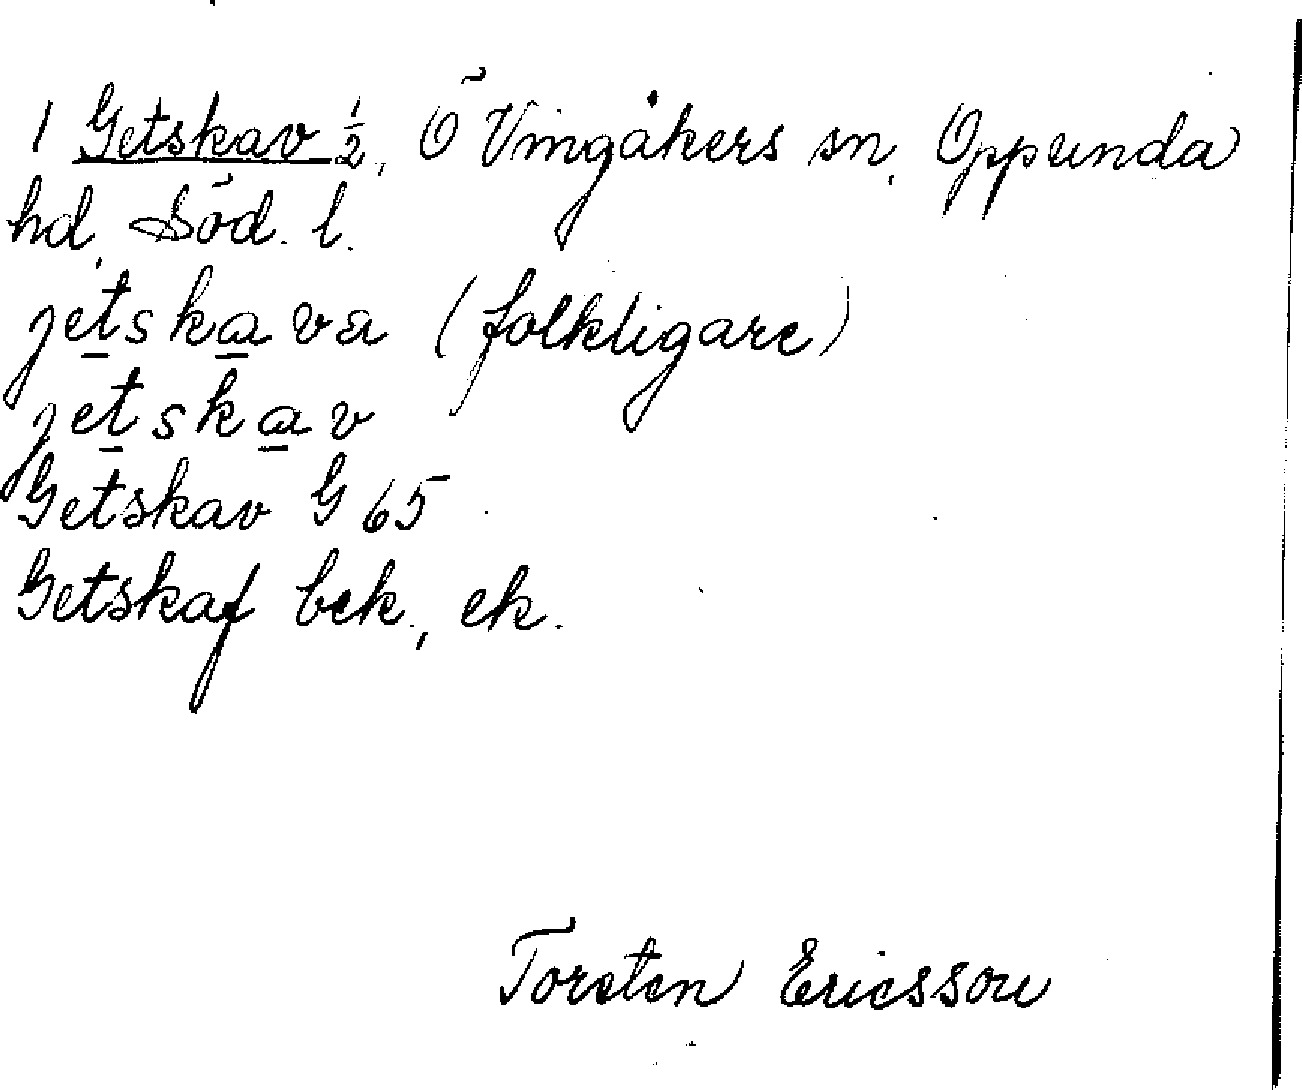 1 Getskav 1/2, Ö Vingåkers sn, Oppunda
hd, Söd. l.
jetskava (folkligare)
jetskav
Getskav G 65
Getskaf bek., ek.
Torsten Ericsson